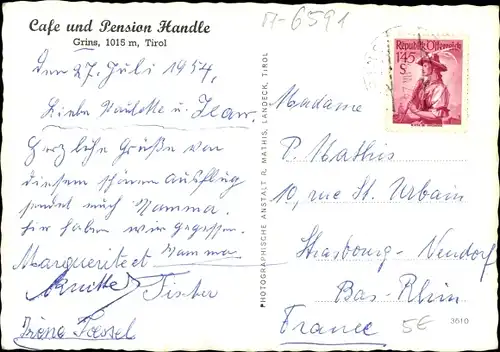 Cafe und Pension Handle
Grins, 1015 m, Tirol
M-6591
den 27. Juli 1954,
Liebe Paulette u. Jean.
Herzliche Grüße von
diesem schönen Ausflug
sendet euch Mamma.
hier haben wir gegessen.
Mamma
Marguerite et
Fister
Irène
PHOTOGRAPHISCHE ANSTALT R. MATHIS, LANDECK, TIROL
Republik Österreich
1.45
S
Madame
P. Mathis
10, rue St. Urbain
Strasbourg-Neudorf
Bas-Rhin
France
5€
3610